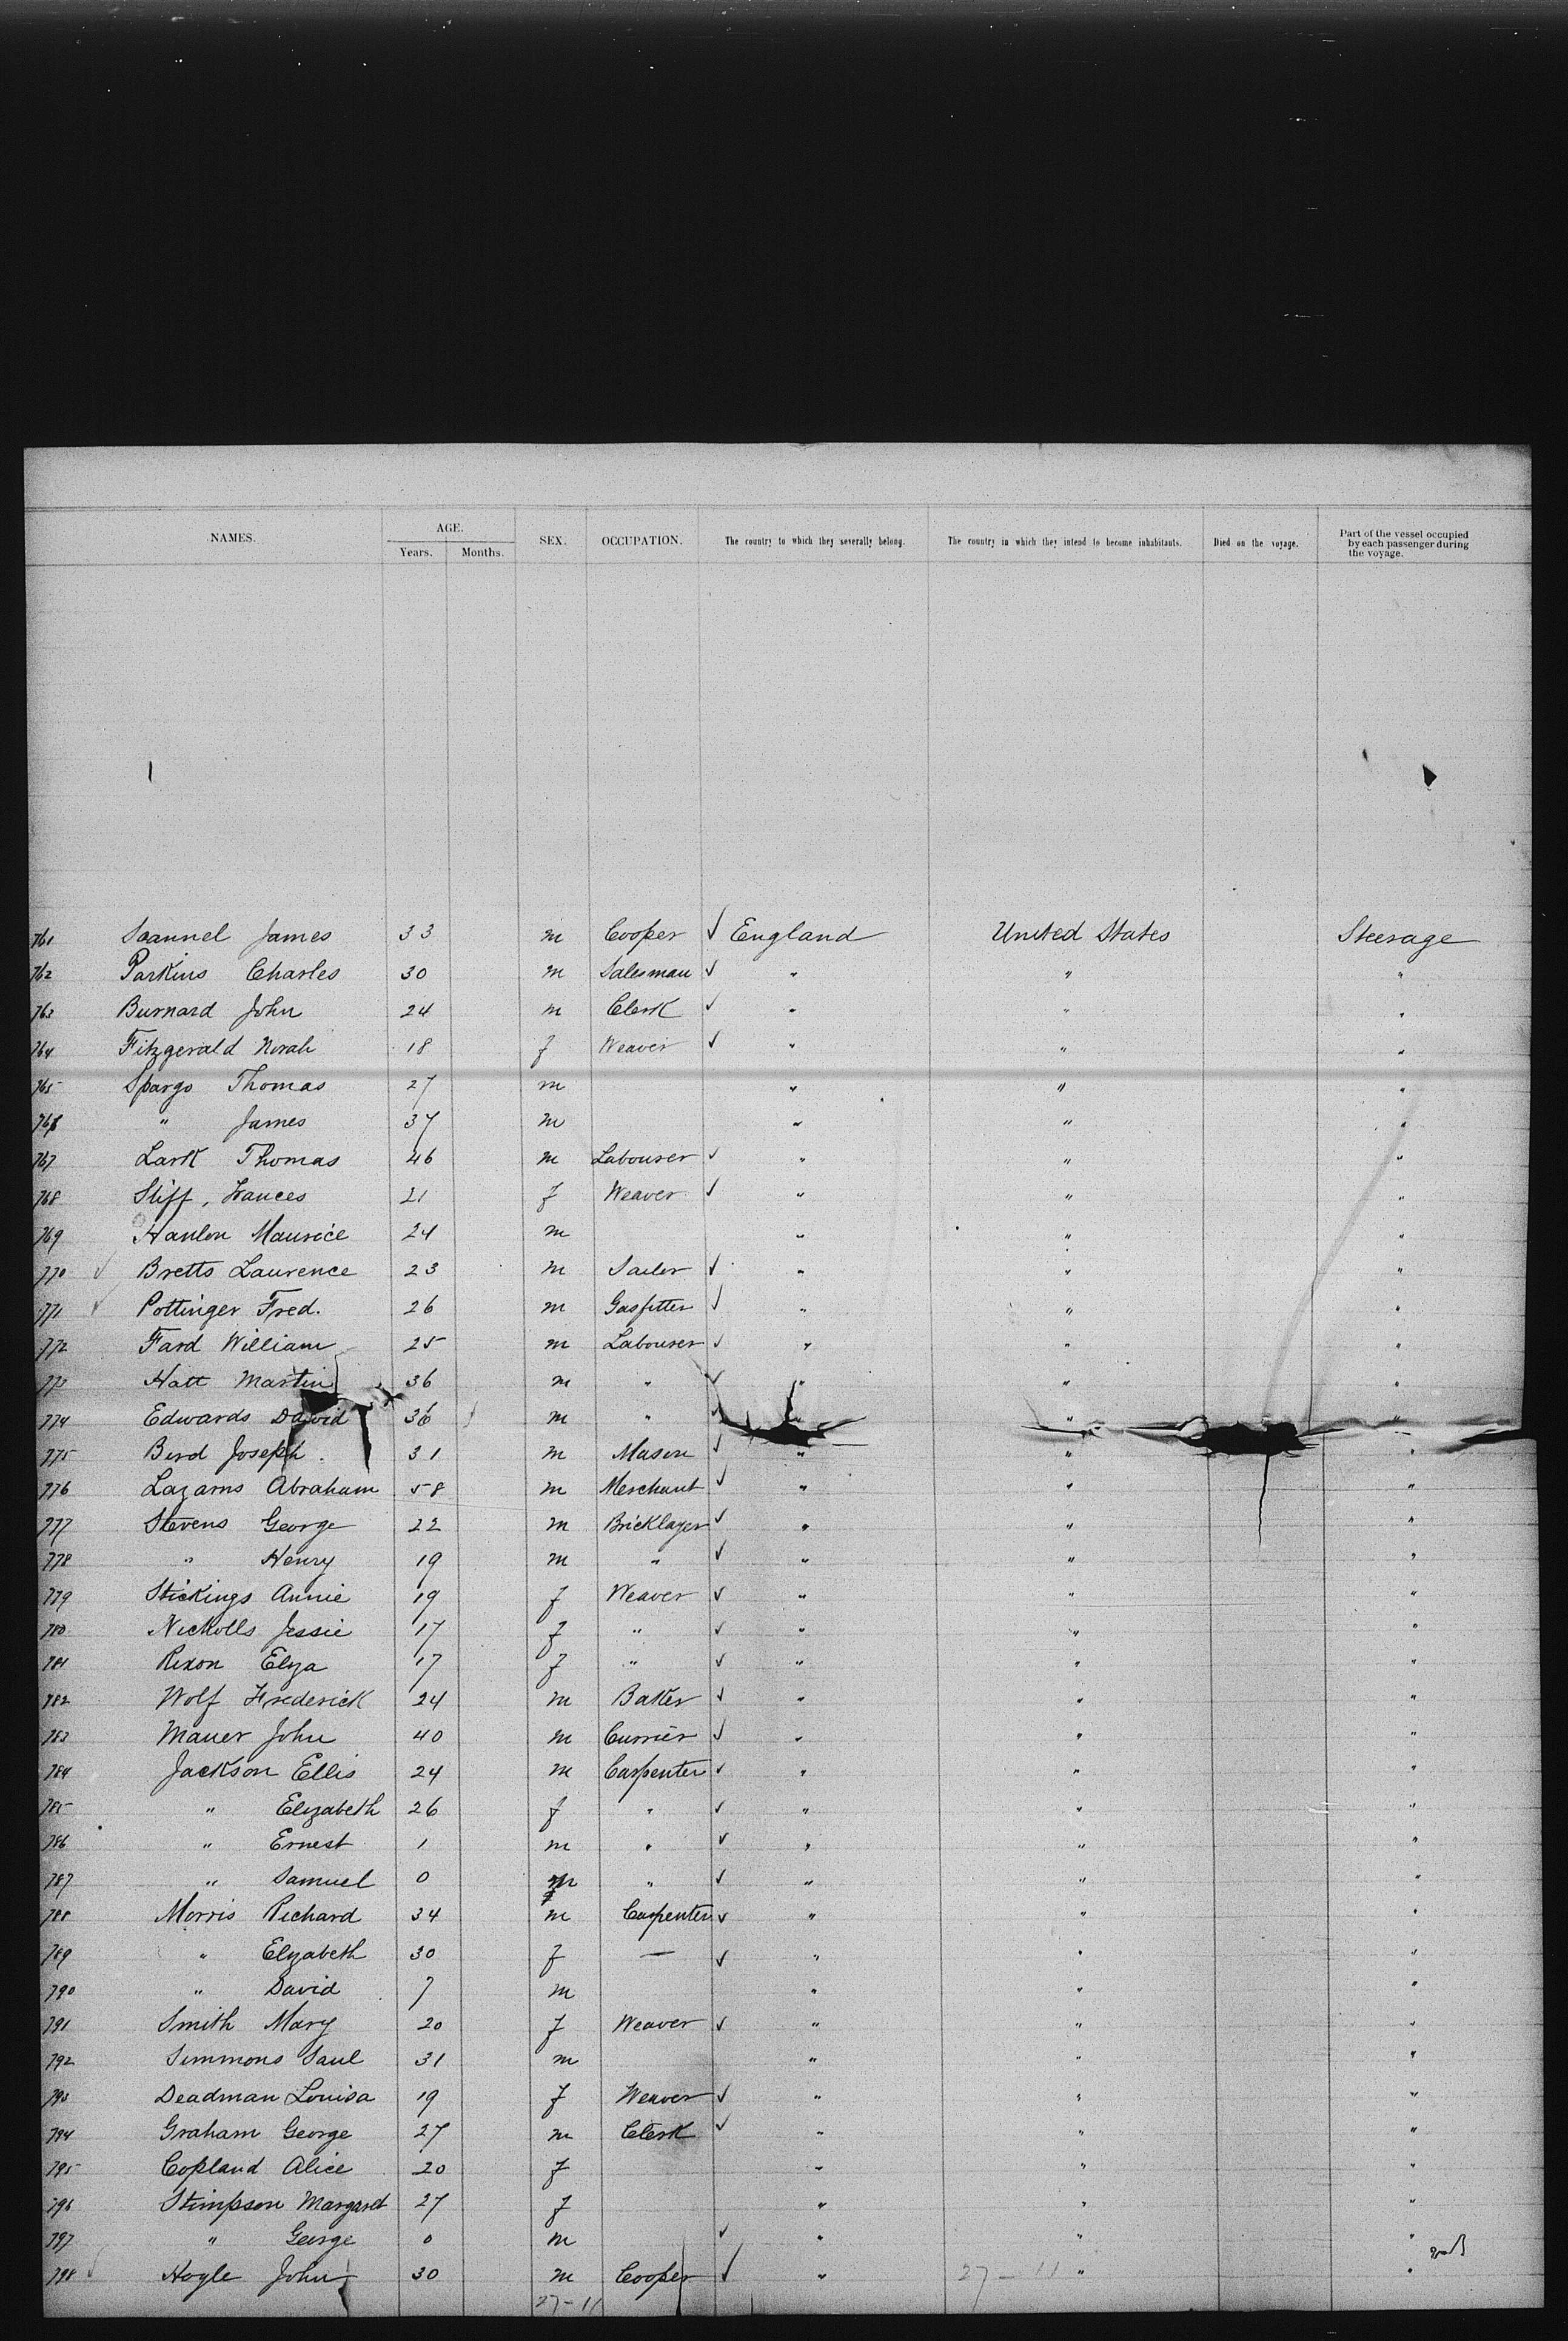 NAMES. AGE. SEX. OCCUPATION. The country to which they severally belong. The country in which they intend to become inhabitants. Died on the voyage. Part of the vessel occupied by each passenger during the voyage.
Years. Months.
761 Scannel James 33 m Cooper ✓ England United States Steerage
762 Parkins Charles 30 m Salesman ✓ " " "
763 Burnard John 24 m Clerk ✓ " " "
764 Fitzgerald Norah 18 f Weaver ✓ " " "
765 Spargo Thomas 27 m " " "
766 " James 37 m " " "
767 Lark Thomas 46 m Labourer ✓ " " "
768 Stiff, Frances 21 f Weaver ✓ " " "
769 Hanlon Maurice 24 m " " "
770 ✓ Bretts Laurence 23 m Sailer ✓ " " "
771 ✓ Pottinger Fred. 26 m Gasfitter ✓ " " "
772 Fard William 25 m Labourer ✓ " " "
773 Hatt Martin 36 m " ✓ " " "
774 Edwards David 36 m " ✓ " " "
775 Bird Joseph 31 m Mason ✓ " " "
776 Lazarus Abraham 58 m Merchant ✓ " " "
777 Stevens George 22 m Bricklayer ✓ " " "
778 " Henry 19 m " ✓ " " "
779 Stickings Annie 19 f Weaver ✓ " " "
780 Nickolls Jessie 17 f " ✓ " " "
781 Rixon Eliza 17 f " ✓ " " "
782 Wolf Frederick 24 m Baker ✓ " " "
783 Mauer John 40 m Currier ✓ " " "
784 Jackson Ellis 24 m Carpenter ✓ " " "
785 " Elizabeth 26 f " ✓ " " "
786 " Ernest 1 m " ✓ " " "
787 " Samuel 0 m " ✓ " " "
788 Morris Richard 34 m Carpenter ✓ " " "
789 " Elizabeth 30 f — ✓ " " "
790 " David 7 m " " "
791 Smith Mary 20 f Weaver ✓ " " "
792 Simmons Saul 31 m " " "
793 Deadman Louisa 19 f Weaver ✓ " " "
794 Graham George 27 m Clerk ✓ " " "
795 Copland Alice 20 f " " "
796 Stimpson Margaret 27 f " " "
797 " George 0 m ✓ " " "
798 ✓ Hoyle John 30 m Cooper ✓ " 27 - 11 " "
27-11